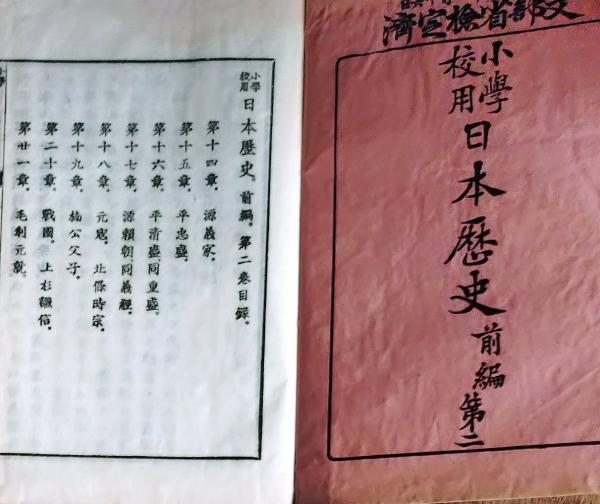 文部省檢定濟
小學校用日本歷史前編第二
小學校用 日本歷史。前編。第二卷目錄。
第十四章。 源義家。
第十五章。 平忠盛。
第十六章。 平清盛、同重盛。
第十七章。 源賴朝、同義經。
第十八章。 元寇。 北條時宗。
第十九章。 楠公父子。
第二十章。 戰國。 上杉謙信。
第廿一章。 毛利元就。